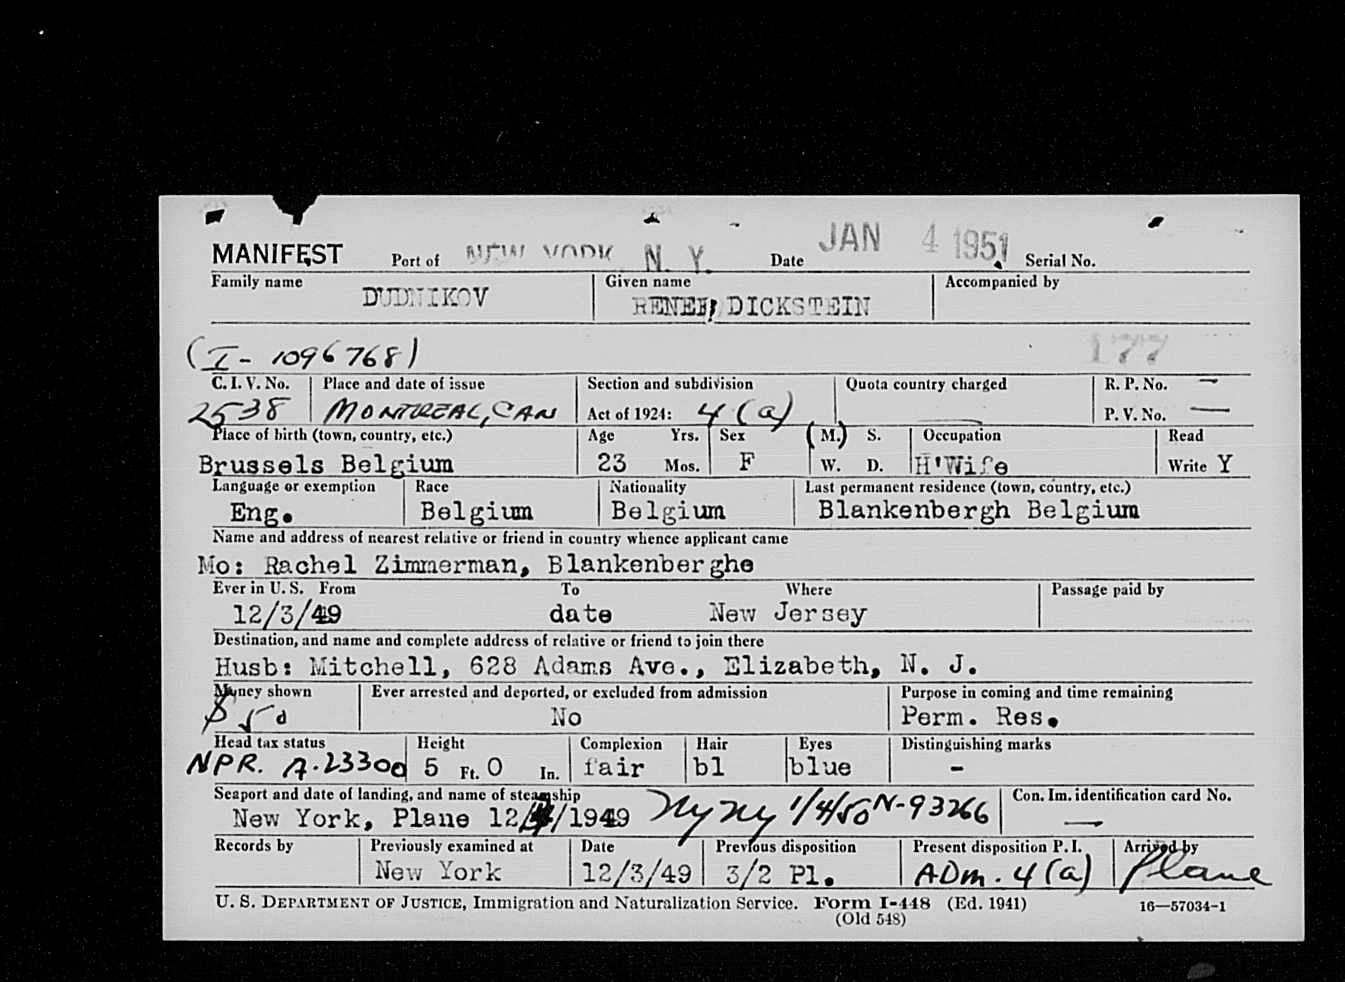 MANIFEST Port of NEW YORK N. Y. Date JAN 4 1951 Serial No.
Family name Given name Accompanied by
DUDNIKOV RENEE, DICKSTEIN
(I- 1096768) 177
C. I. V. No. Place and date of issue Section and subdivision Quota country charged R. P. No. —
2538 MONTREAL, CAN Act of 1924: 4 (a) — P. V. No. —
Place of birth (town, country, etc.) Age Yrs. Sex (M.) S. Occupation Read
Brussels Belgium 23 Mos. F W. D. H'Wife Write Y
Language or exemption Race Nationality Last permanent residence (town, country, etc.)
Eng. Belgium Belgium Blankenbergh Belgium
Name and address of nearest relative or friend in country whence applicant came
Mo: Rachel Zimmerman, Blankenberghe
Ever in U. S. From To Where Passage paid by
12/3/49 date New Jersey
Destination, and name and complete address of relative or friend to join there
Husb: Mitchell, 628 Adams Ave., Elizabeth, N. J.
Money shown Ever arrested and deported, or excluded from admission Purpose in coming and time remaining
$50 No Perm. Res.
Head tax status Height Complexion Hair Eyes Distinguishing marks
NPR. A-23300 5 Ft. 0 In. fair bl blue -
Seaport and date of landing, and name of steamship Con. Im. identification card No.
New York, Plane 12/ /1949 NY NY 1/4/50 N-93266 —
Records by Previously examined at Date Previous disposition Present disposition P. I. Arrived by
New York 12/3/49 3/2 Pl. ADM. 4 (a) Plane
U. S. DEPARTMENT OF JUSTICE, Immigration and Naturalization Service. Form I-448 (Ed. 1941) 16—57034-1
(Old 548)